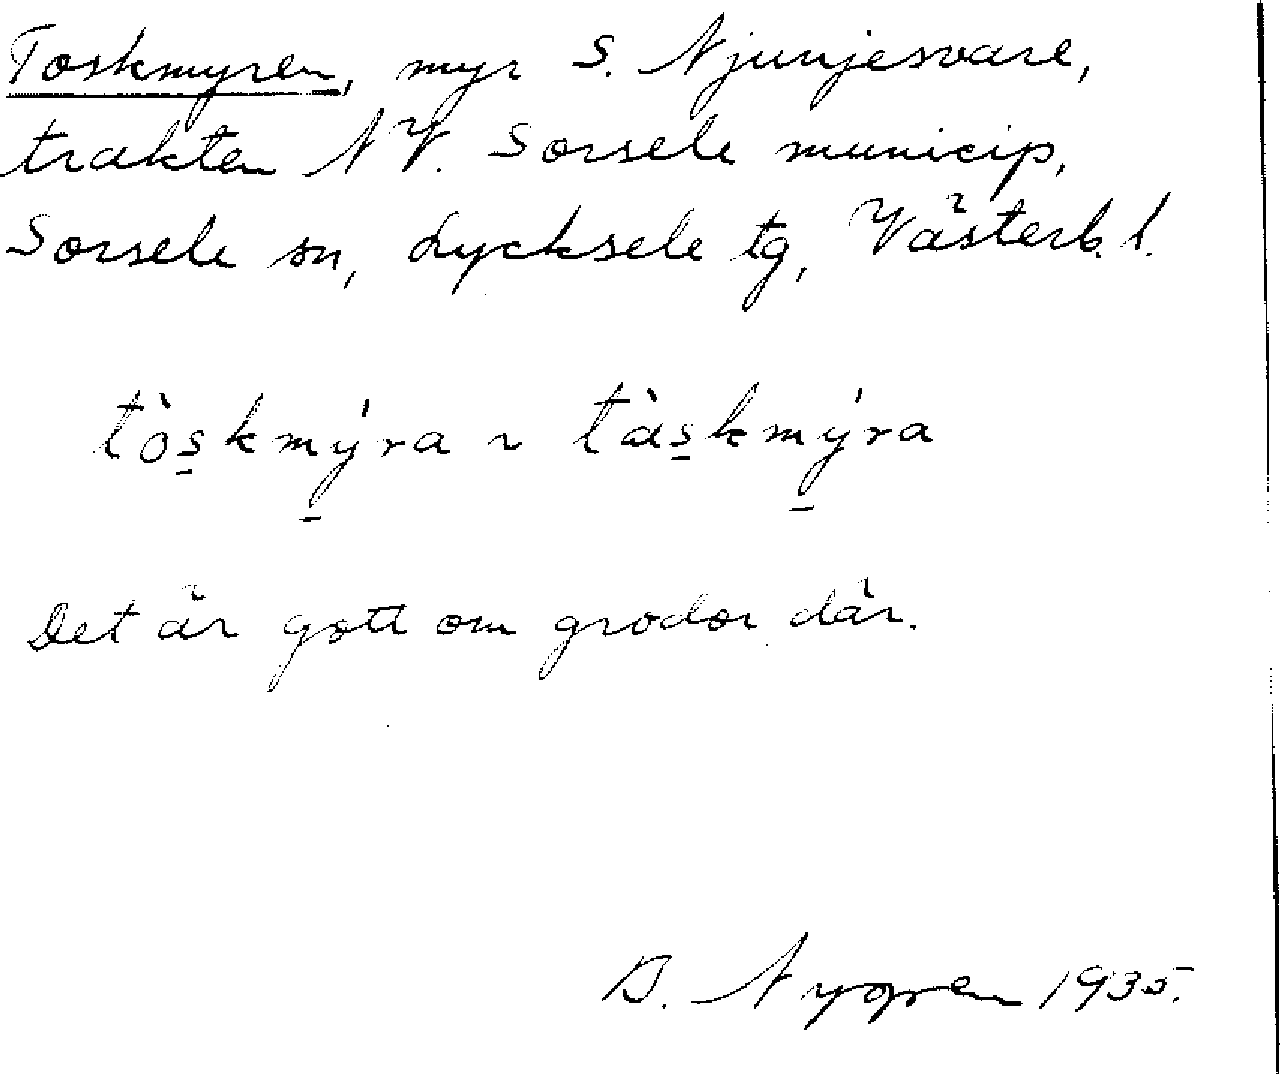 Toskmyren, myr S. Njunjesvare,
trakten NV. Sorsele municip,
Sorsele sn, Lycksele tg, Västerb. l.
tòs̠kmý̠ra ~ tàs̠kmý̠ra
Det är gott om grodor där.
B. Nygren 1935.